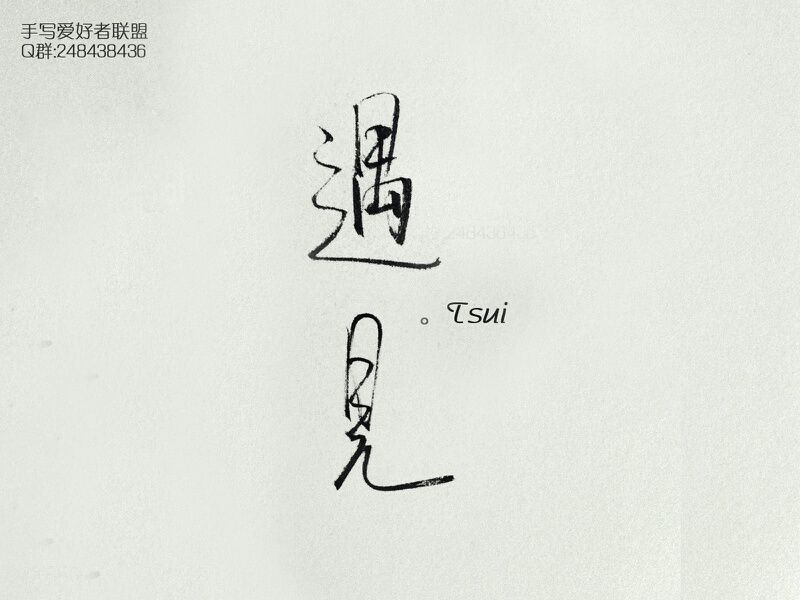 手写爱好者联盟
Q群:248438436
遇
見
。Tsui